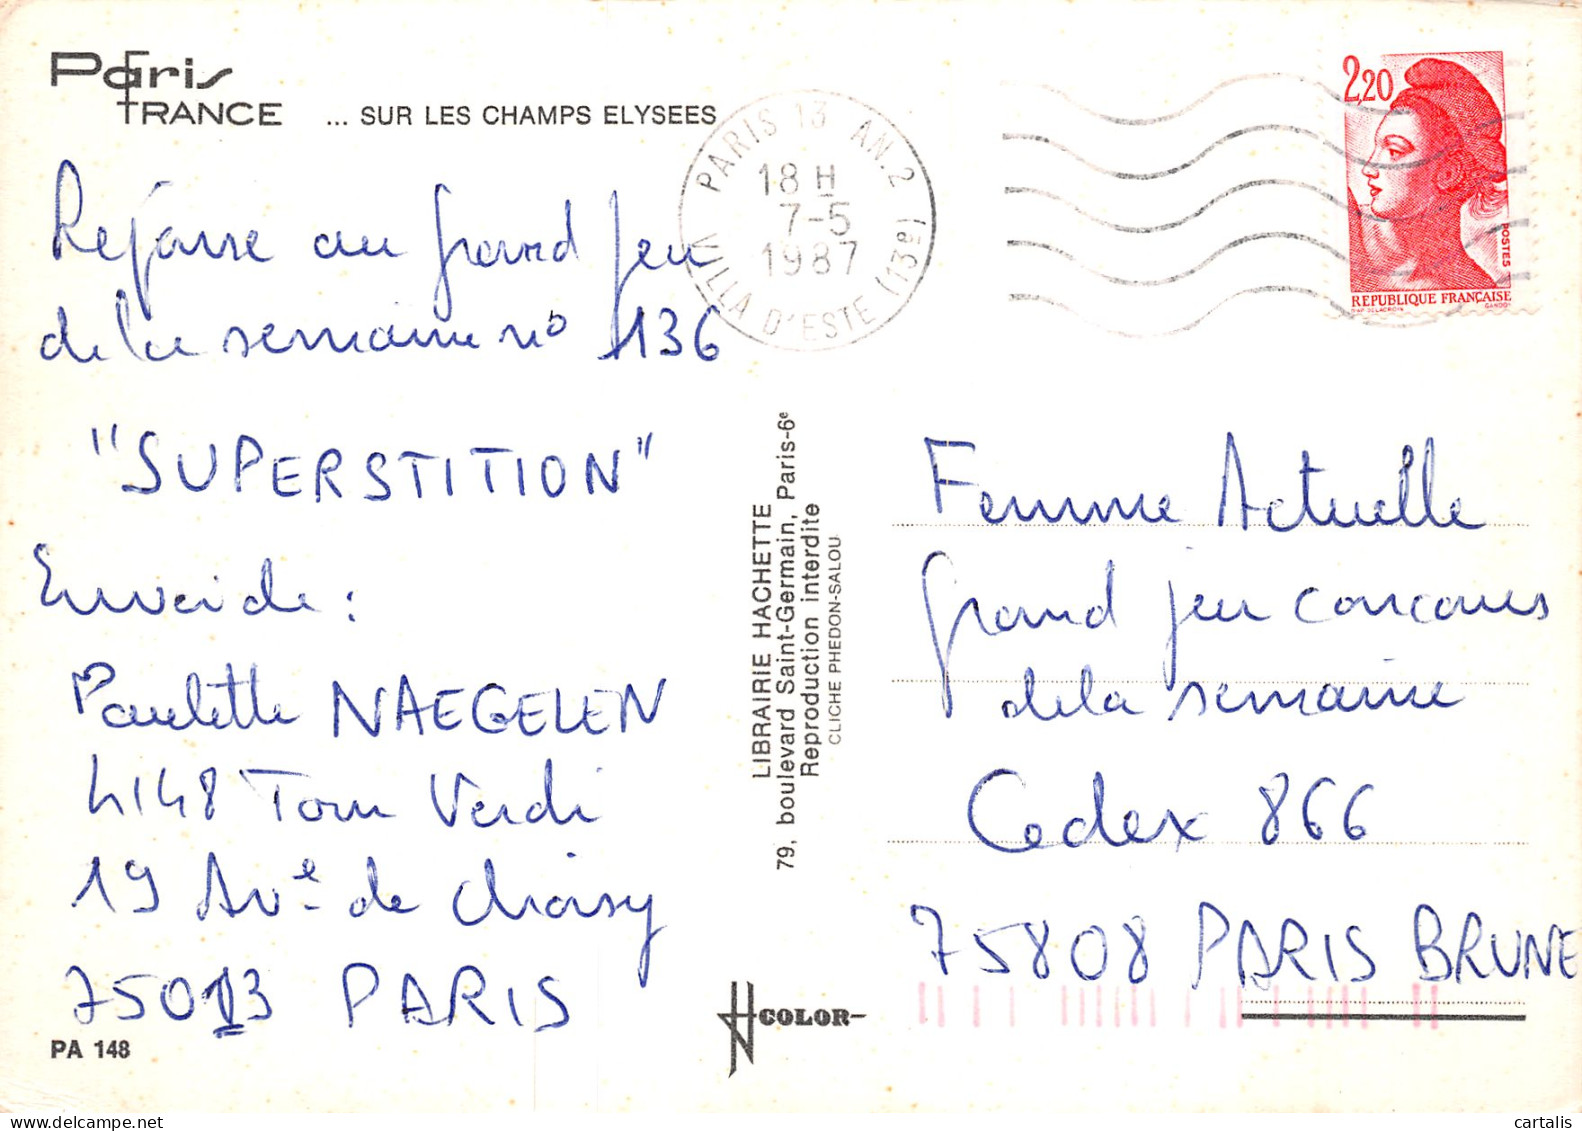 Paris
FRANCE
... SUR LES CHAMPS ELYSEES
Réponse au grand jeu
de la semaine no 136
"SUPERSTITION"
Envoi de :
Paulette NAEGELEN
4148 Tour Verdi
19 Av.e de Choisy
75013 PARIS
PA 148
LIBRAIRIE HACHETTE
79, boulevard Saint-Germain, Paris-6e
Reproduction interdite
CLICHE PHEDON-SALOU
COLOR
PARIS 13 AN. 2
18 H
7-5
1987
VILLA D'ESTE (13e)
2,20
POSTES
REPUBLIQUE FRANÇAISE
D'AP. DELACROIX
GANDON
Femme Actuelle
grand jeu concours
de la semaine
Cedex 866
75808 PARIS BRUNE
cartalis